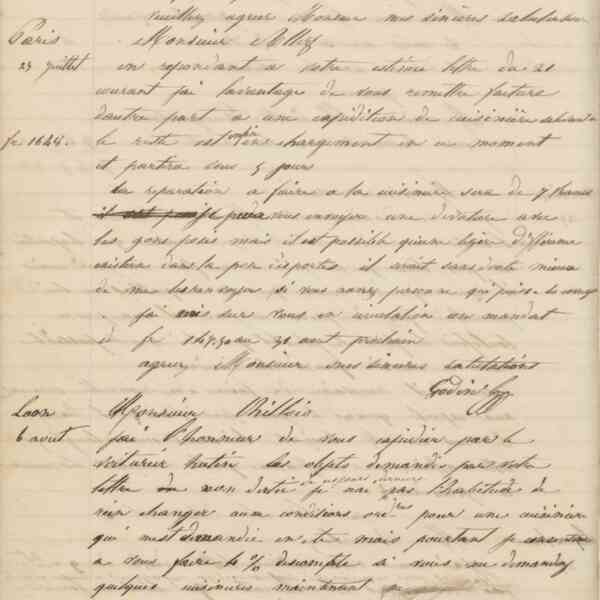 veuillez agréer Monsieur mes sincères salutations
Paris Monsieur
23 juillet en repondant a votre estimée lettre du 21
courant jai lavantage de vous remettre facture
dautre part a une expédition de cuisinière
fr 1644. le reste est enfin en chargement en ce moment
et partira sous 5 jours
la reparation a faire a la cuisinière sera de 7 francs
vous envoyer une devature avec
les gons posés mais il est possible quune légère différence
existera dans la pose des portes il serait sans doute mieux
de me les renvoyer si vous navez personne qui puisse les
jai mis sur vous en circulation un mandat
de fr 147.50 au 31 aout prochain
agréez Monsieur mes sincères salutations
Godin
Laon Monsieur
6 aout jai l'honneur de vous expédier par le
voiturier les objets demandés par votre
lettre non datée je nai pas l'habitude de
rien changer aux conditions pour une cuisinière
qui mest demandée mais pourtant je
a vous faire 4 % descompte si vous me demandez
quelques cuisinières maintenant